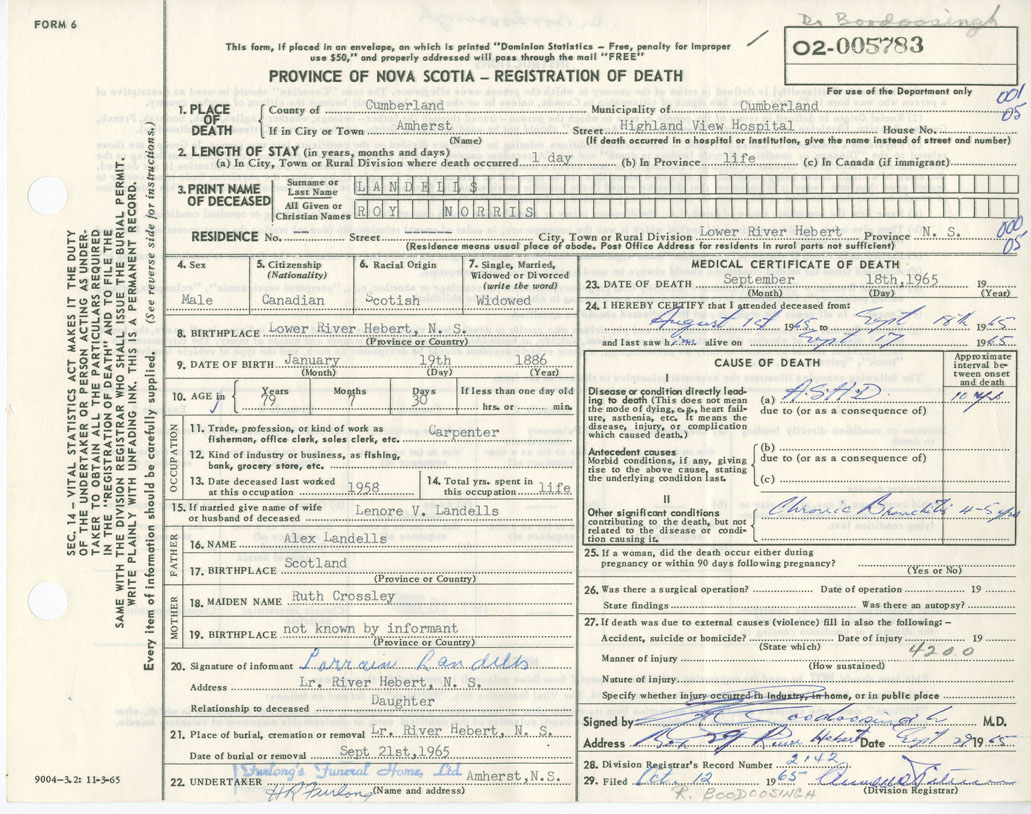 FORM 6
Dr Boodoosingh
This form, if placed in an envelope, on which is printed "Dominion Statistics – Free, penalty for improper
use $50," and properly addressed will pass through the mail "FREE"
02-005783
For use of the Department only
PROVINCE OF NOVA SCOTIA – REGISTRATION OF DEATH
001
05
1. PLACE OF DEATH
County of Cumberland Municipality of Cumberland
If in City or Town Amherst Street Highland View Hospital House No.
(Name) (If death occurred in a hospital or institution, give the name instead of street and number)
2. LENGTH OF STAY (in years, months and days)
(a) In City, Town or Rural Division where death occurred 1 day (b) In Province life (c) In Canada (if immigrant)
3. PRINT NAME OF DECEASED
Surname or Last Name LANDELLS
All Given or Christian Names ROY NORRIS
000
05
RESIDENCE No. — Street — City, Town or Rural Division Lower River Hebert Province N. S.
(Residence means usual place of abode. Post Office Address for residents in rural parts not sufficient)
4. Sex
Male
5. Citizenship
(Nationality)
Canadian
6. Racial Origin
Scotish
7. Single, Married,
Widowed or Divorced
(write the word)
Widowed
8. BIRTHPLACE Lower River Hebert, N. S.
(Province or Country)
9. DATE OF BIRTH January 19th 1886
(Month) (Day) (Year)
10. AGE in
Years Months Days If less than one day old
79 7 30 hrs. or min.
OCCUPATION
11. Trade, profession, or kind of work as
fisherman, office clerk, sales clerk, etc. Carpenter
12. Kind of industry or business, as fishing,
bank, grocery store, etc.
13. Date deceased last worked
at this occupation 1958
14. Total yrs. spent in
this occupation life
15. If married give name of wife
or husband of deceased Lenore V. Landells
FATHER
16. NAME Alex Landells
17. BIRTHPLACE Scotland
(Province or Country)
MOTHER
18. MAIDEN NAME Ruth Crossley
19. BIRTHPLACE not known by informant
(Province or Country)
20. Signature of informant Lorrain Landells
Address Lr. River Hebert, N. S.
Relationship to deceased Daughter
21. Place of burial, cremation or removal Lr. River Hebert, N. S.
Date of burial or removal Sept 21st,1965
22. UNDERTAKER Furlong's Funeral Home, Ltd. Amherst,N.S.
HR Furlong (Name and address)
MEDICAL CERTIFICATE OF DEATH
23. DATE OF DEATH September 18th,1965 19
(Month) (Day) (Year)
24. I HEREBY CERTIFY that I attended deceased from:
August 1st 1965 to Sept 18th 1965
and last saw him alive on Sept 17 1965
CAUSE OF DEATH
Approximate
interval be-
tween onset
and death
I
Disease or condition directly lead-
ing to death (This does not mean
the mode of dying, e.g., heart fail-
ure, asthenia, etc. It means the
disease, injury, or complication
which caused death.)
(a) ASHD
due to (or as a consequence of)
Antecedent causes
Morbid conditions, if any, giving
rise to the above cause, stating
the underlying condition last.
(b)
due to (or as a consequence of)
(c)
II
Other significant conditions
contributing to the death, but not
related to the disease or condi-
tion causing it.
Chronic Bronchitis 4-5 yrs
25. If a woman, did the death occur either during
pregnancy or within 90 days following pregnancy?
(Yes or No)
26. Was there a surgical operation? Date of operation 19
State findings Was there an autopsy?
27. If death was due to external causes (violence) fill in also the following: –
Accident, suicide or homicide? Date of injury 19
(State which)
4200
Manner of injury
(How sustained)
Nature of injury
Specify whether injury occurred in industry, in home, or in public place
Signed by R Boodoosingh M.D.
Address Box 29 River Hebert Date Sept 29 1965
28. Division Registrar's Record Number 2142
29. Filed Oct. 12 1965
(Division Registrar)
R. BOODOOSINGH
SEC. 14 – VITAL STATISTICS ACT MAKES IT THE DUTY
OF THE UNDERTAKER OR PERSON ACTING AS UNDER-
TAKER TO OBTAIN ALL THE PARTICULARS REQUIRED
IN THE "REGISTRATION OF DEATH" AND TO FILE THE
SAME WITH THE DIVISION REGISTRAR WHO SHALL ISSUE THE BURIAL PERMIT.
WRITE PLAINLY WITH UNFADING INK. THIS IS A PERMANENT RECORD.
Every item of information should be carefully supplied. (See reverse side for instructions.)
9004-3.2: 11-3-65